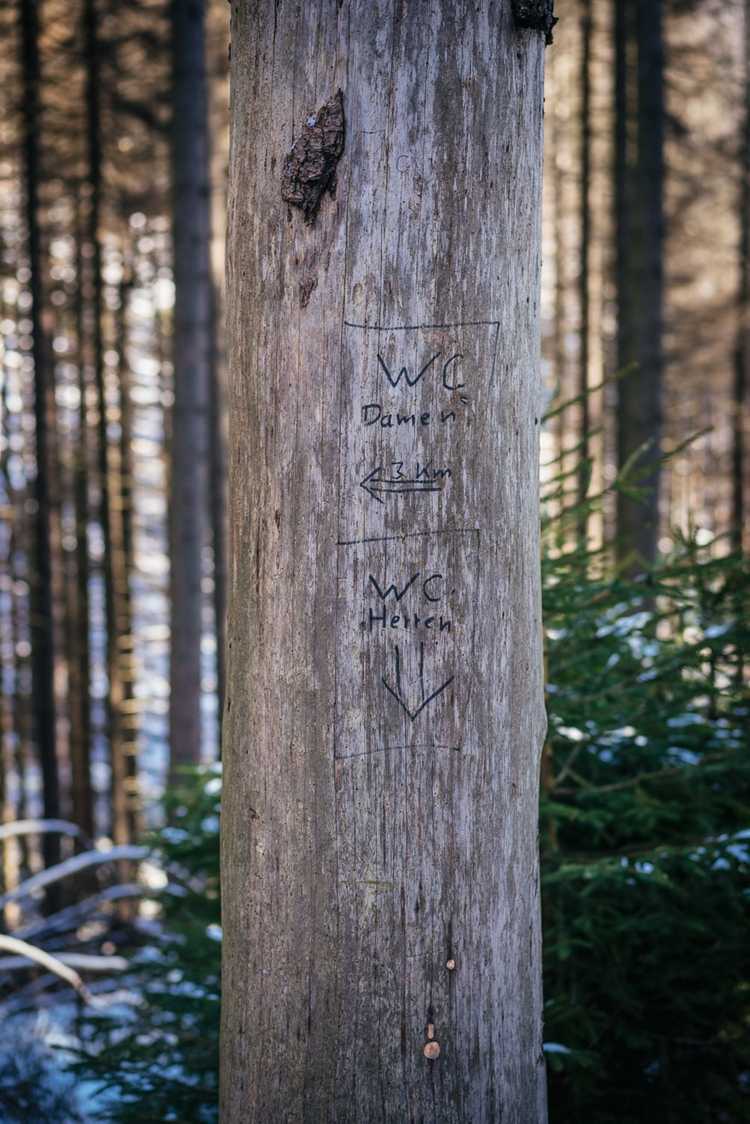 WC
Damen
3 Km
WC
Herren